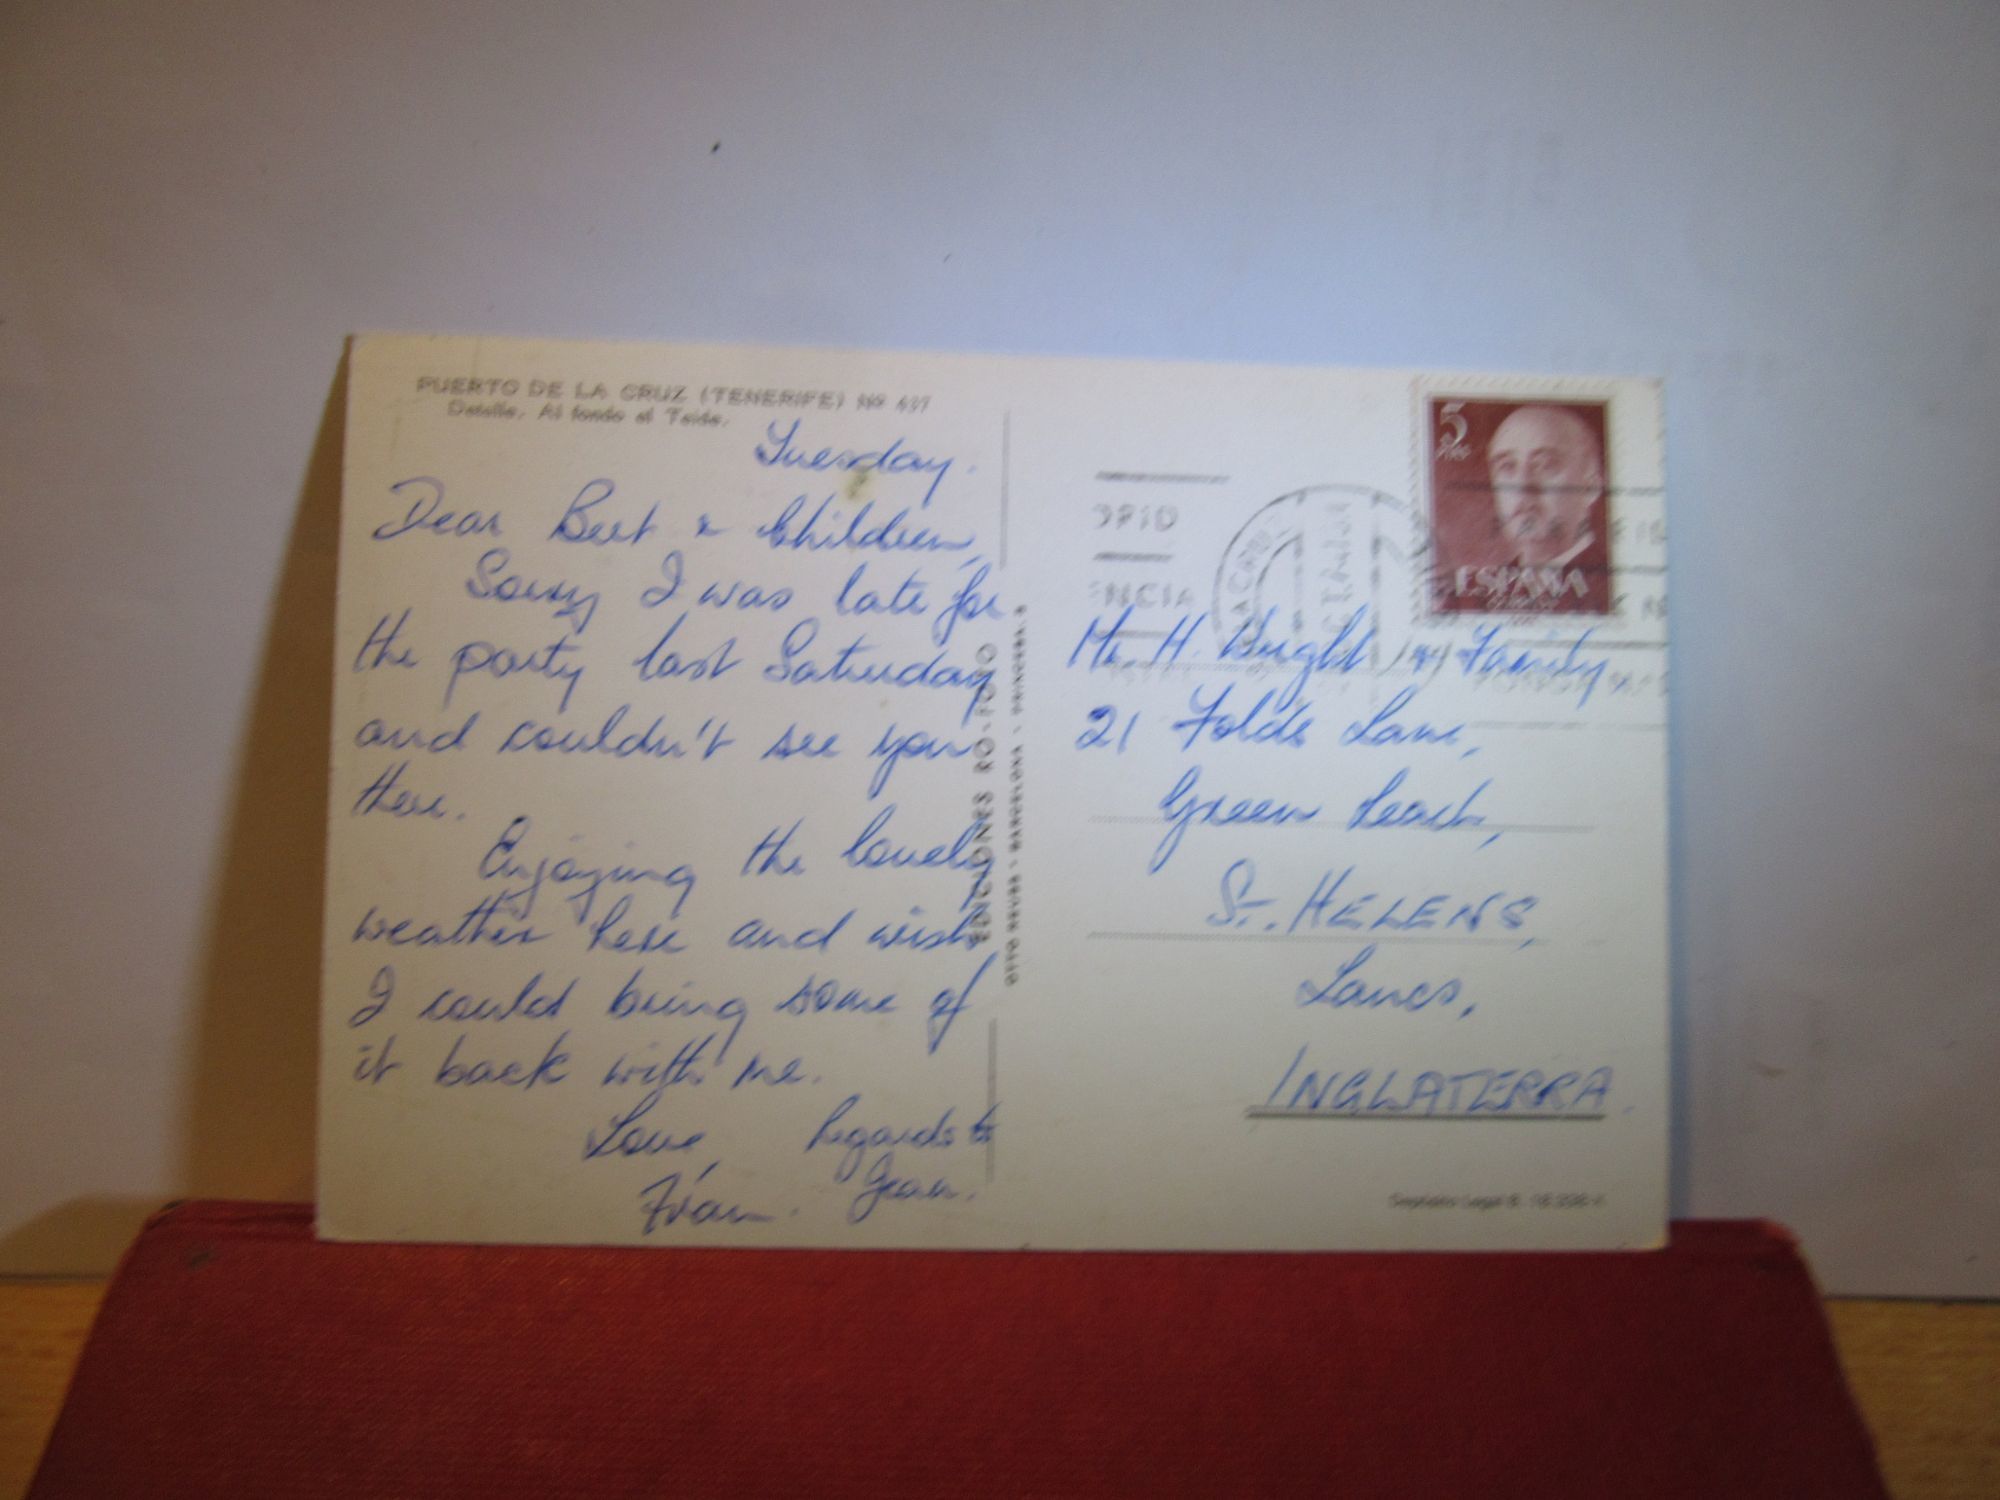 PUERTO DE LA CRUZ (TENERIFE) Nº 437
Detalle. Al fondo el Teide.
Tuesday.
Dear Bert & Children,
Sorry I was late for
the party last Saturday
and couldn't see you
there.
Enjoying the lovely
weather here and wish
I could bring some of
it back with me.
Love, Regards to
Fran. Jean.
EDICIONES RO-FOTO
BARCELONA
5
PTAS
ESPAÑA
CORREOS
NCIA
Mr H. Wright & Family
21 Folds Lane,
Green Leach,
St. HELENS,
Lancs,
INGLATERRA.
Depósito Legal B.